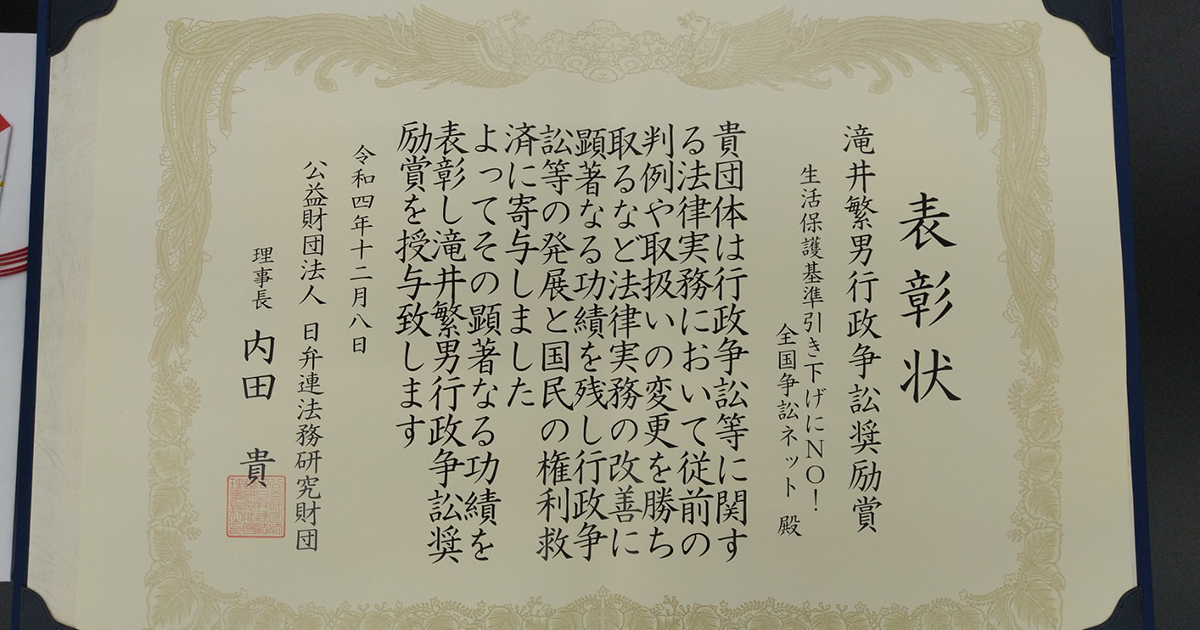 表彰状
滝井繁男行政争訟奨励賞
生活保護基準引き下げにNO！
全国争訟ネット 殿
貴団体は行政争訟等に関す
る法律実務において従前の
判例や取扱いの変更を勝ち
取るなど法律実務の改善に
顕著なる功績を残し行政争
訟等の発展と国民の権利救
済に寄与しました
よってその顕著なる功績を
表彰し滝井繁男行政争訟奨
励賞を授与致します
令和四年十二月八日
公益財団法人 日弁連法務研究財団
理事長 内田 貴